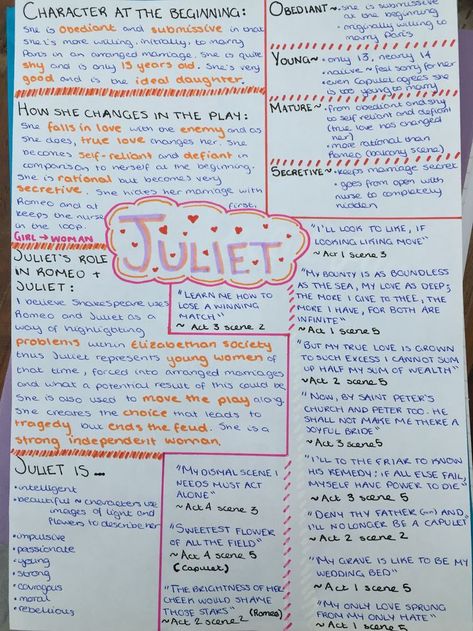 CHARACTER AT THE BEGINNING:
She is obedient and submissive in that
she's more willing, initially, to marry
Paris in an arranged marriage. She is quite
shy and is only 13 years old. She's very
good and is the ideal daughter.
HOW SHE CHANGES IN THE PLAY:
She falls in love with the enemy and as
she does, true love changes her. She
becomes self-reliant and defiant in
comparison to herself at the beginning.
She is rational but becomes very
secretive. She hides her marriage with
Romeo and at first,
keeps the nurse
in the loop.
GIRL → WOMAN
JULIET'S ROLE
IN ROMEO +
JULIET:
I believe Shakespeare uses
Romeo and Juliet as a
way of highlighting
problems within Elizabethan society
thus Juliet represents young women of
that time, forced into arranged marriages
and what a potential result of this could be.
She is also used to move the play along.
She creates the choice that leads to
tragedy but ends the feud. She is a
strong independent woman.
JULIET IS ...
• intelligent
• beautiful ~ characters use
images of light and
flowers to describe her
• impulsive
• passionate
• young
• strong
• couragous
• moral
• rebellious
JULIET
OBEDIENT ~ • she is submissive
at the beginning
• originally willing to
marry Paris
YOUNG ~ • only 13, nearly 14
• naive ~ feel sorry for her
• even Capulet agrees she
is too young to marry
MATURE ~ • from obedient and shy
to self reliant and defiant
(true love has changed
her)
• more rational than
Romeo (balcony scene)
SECRETIVE ~ • keeps marriage secret
• goes from open with
nurse to completely
hidden
"I'LL LOOK TO LIKE, IF
LOOKING LIKING MOVE"
~ Act 1 scene 3
"MY BOUNTY IS AS BOUNDLESS
AS THE SEA, MY LOVE AS DEEP;
THE MORE I GIVE TO THEE, THE
MORE I HAVE, FOR BOTH ARE
INFINITE"
~ Act 1 scene 5
"BUT MY TRUE LOVE IS GROWN
TO SUCH EXCESS I CANNOT SUM
UP HALF MY SUM OF WEALTH"
~ Act 2 scene 5
"NOW, BY SAINT PETER'S
CHURCH AND PETER TOO. HE
SHALL NOT MAKE ME THERE A
JOYFUL BRIDE"
~ Act 3 scene 5
"I'LL TO THE FRIAR TO KNOW
HIS REMEDY: IF ALL ELSE FAIL,
MYSELF HAVE POWER TO DIE"
~ Act 3 scene 5
"DENY THY FATHER (...) AND,
I'LL NO LONGER BE A CAPULET"
~ Act 2 scene 2
"MY GRAVE IS LIKE TO BE MY
WEDDING BED"
~ Act 1 scene 5
"MY ONLY LOVE SPRUNG
FROM MY ONLY HATE"
~ Act 1 scene 5
"LEARN ME HOW TO
LOSE A WINNING
MATCH"
~ Act 3 scene 2
"MY DISMAL SCENE I
NEEDS MUST ACT
ALONE"
~ Act 4 scene 3
"SWEETEST FLOWER
OF ALL THE FIELD"
~ Act 4 scene 5
(Capulet)
"THE BRIGHTNESS OF HER
CHEEK WOULD SHAME
THOSE STARS" (Romeo)
~ Act 2 scene 2